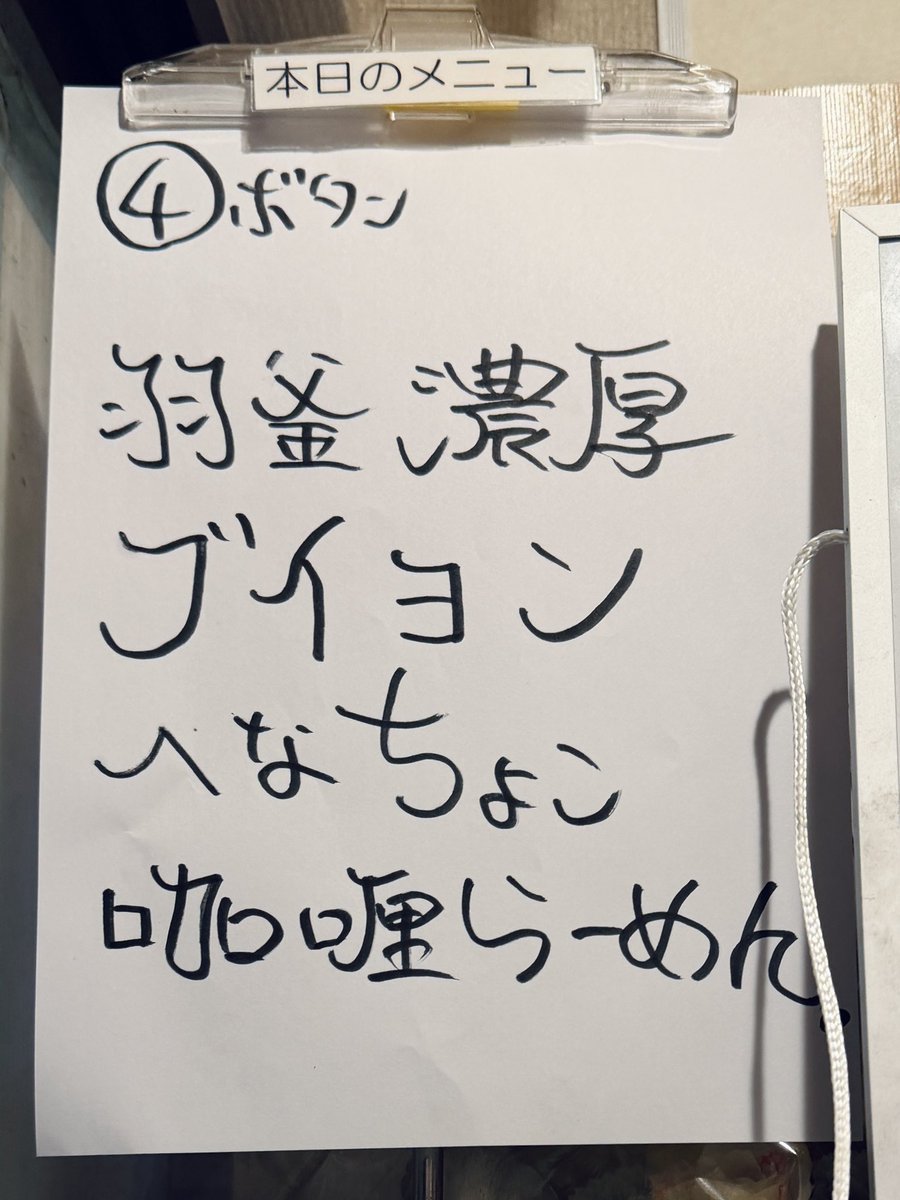 本日のメニュー
④ボタン
羽釜 濃厚
ブイヨン
へなちょこ
咖喱らーめん